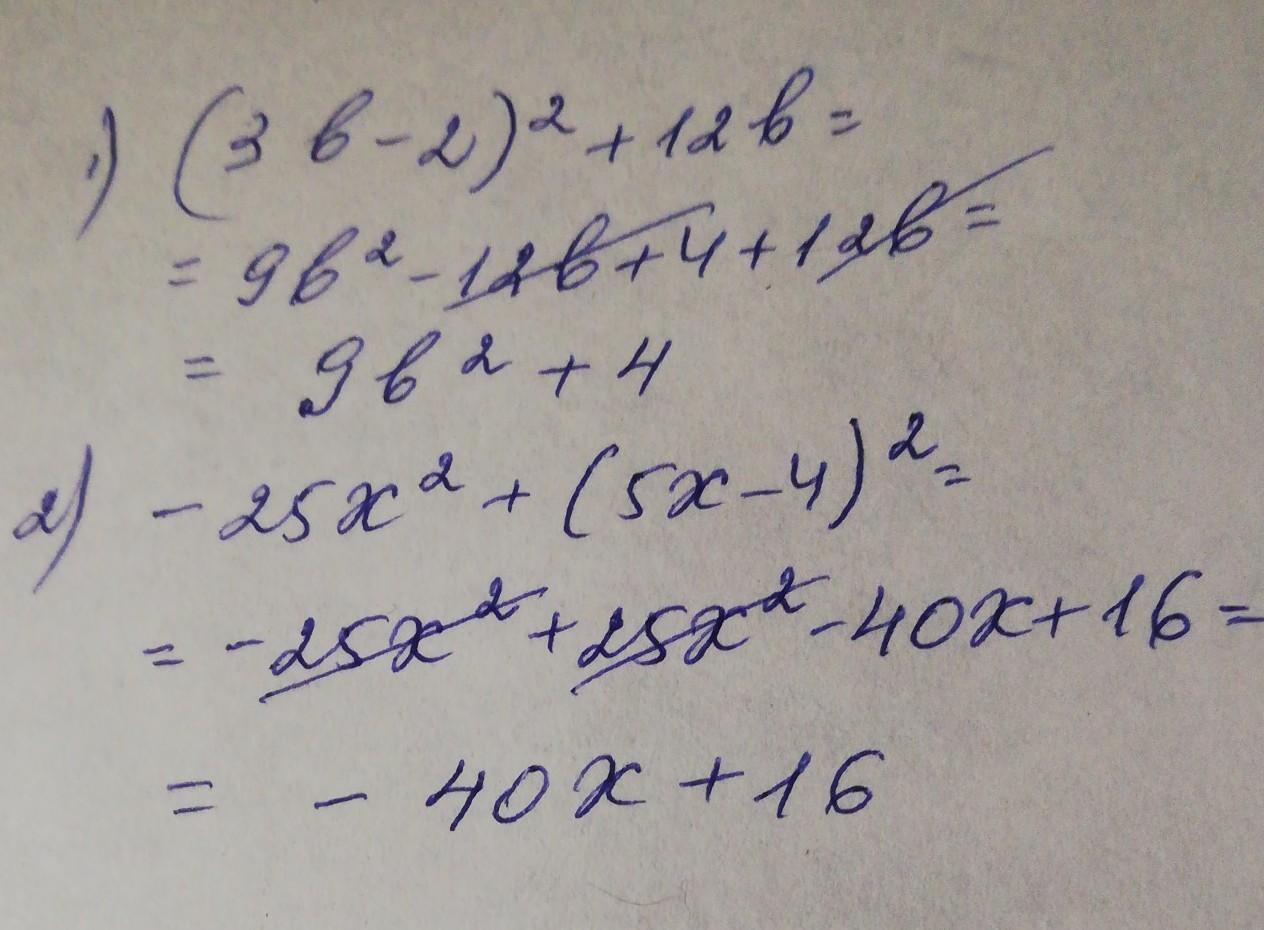 1) (3 b - 2)² + 12 b =
= 9b² - 12b + 4 + 12b =
= 9b² + 4
2) - 25x² + (5x - 4)² =
= - 25x² + 25x² - 40x + 16 =
= - 40x + 16